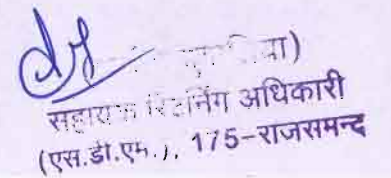 सहायक रिटर्निंग अधिकारी
(एस.डी.एम.), 175-राजसमन्द